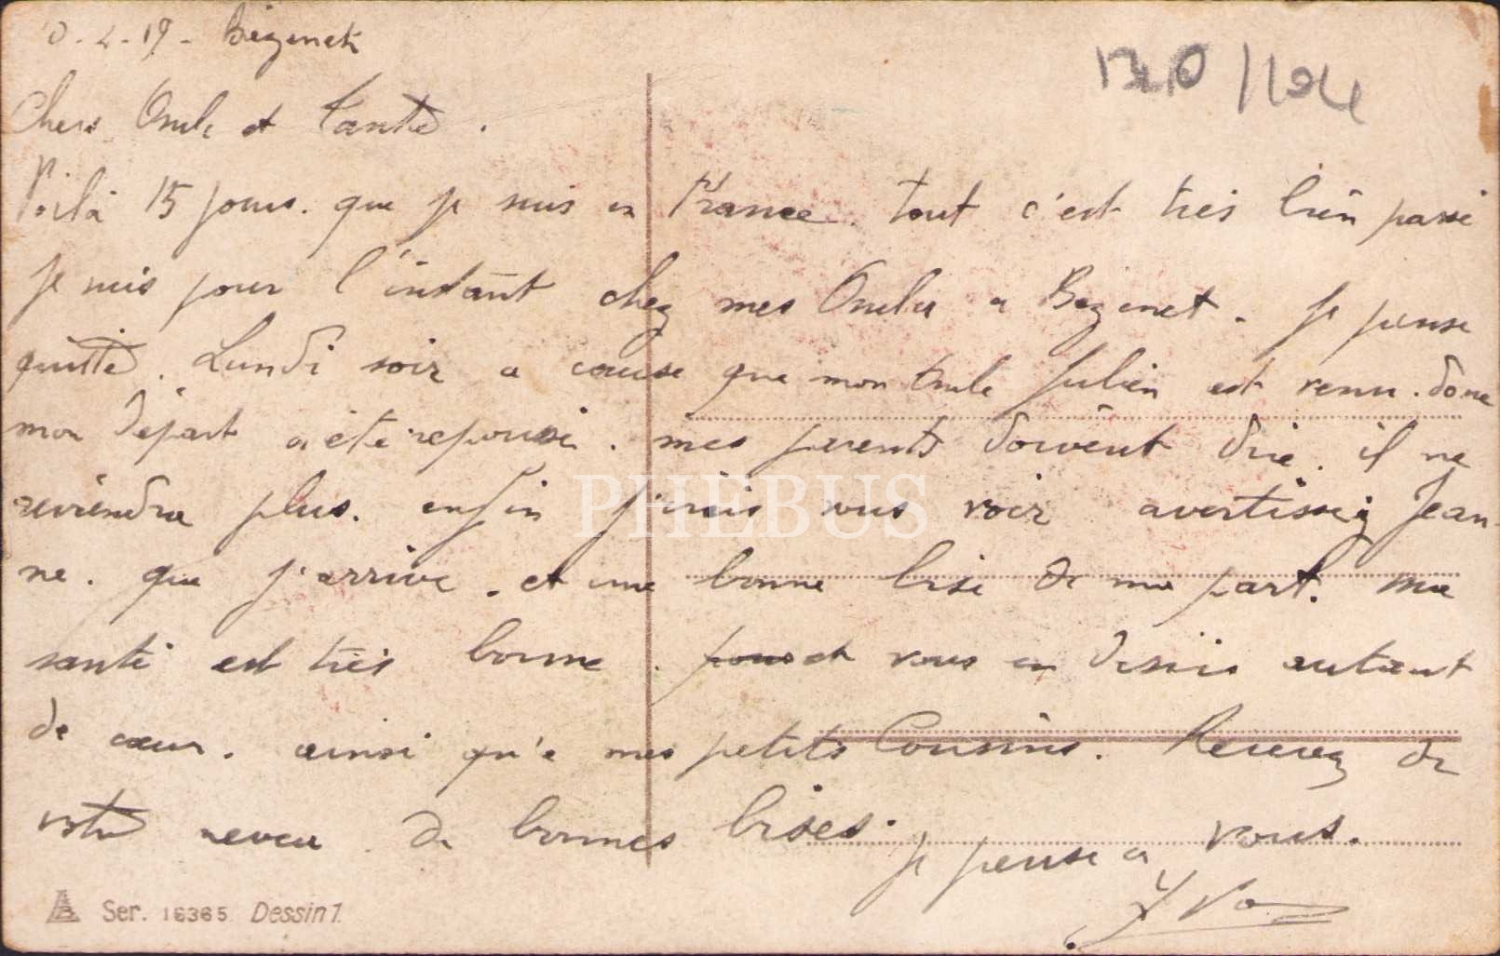 -2-19- Bézenet
1240/1204
Chers Oncle et Tante.
Voilà 15 jours. que je suis en France. tout c'est très bien passé
je suis pour l'instant chez mes Oncles a Bezenet. je pense
quitté. Lundi soir a cause que mon Oncle Julien est venu. donc
mon départ a été repoussé. mes parents doivent dire. il ne
reviendra plus. enfin j'irais vous voir avertissez Jean-
ne. que j'arrive. et une bonne bise de ma part. ma
santé est très bonne. et vous en désire autant
de cœur. ainsi qu'a mes petits Cousins. Recevez de
votre neveu de bonnes bises. je pense a vous.
Yvo
PHEBUS
Ser. 16365 Dessin 1